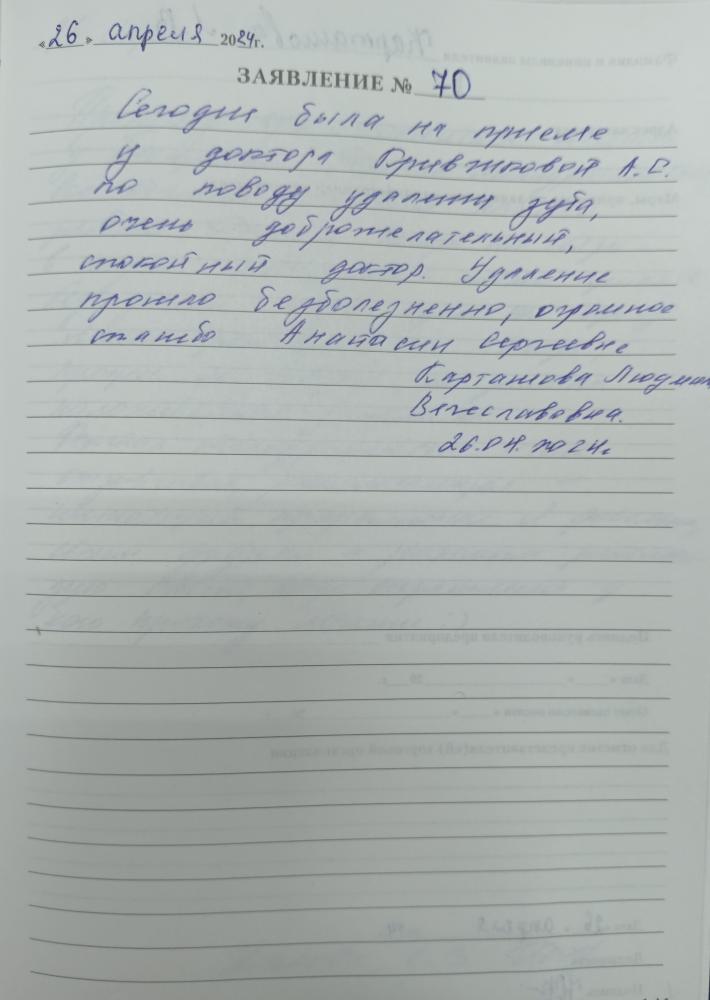 «26» апреля 2024г.
ЗАЯВЛЕНИЕ № 70
Сегодня была на приеме
у доктора А.С.
по поводу удаления зуба,
очень доброжелательный,
спокойный доктор. Удаление
прошло безболезненно, огромное
спасибо Анастасии Сергеевне
Карташова Людмил
Вячеславовна.
26.04.2024г.
Подпись руководителя предприятия